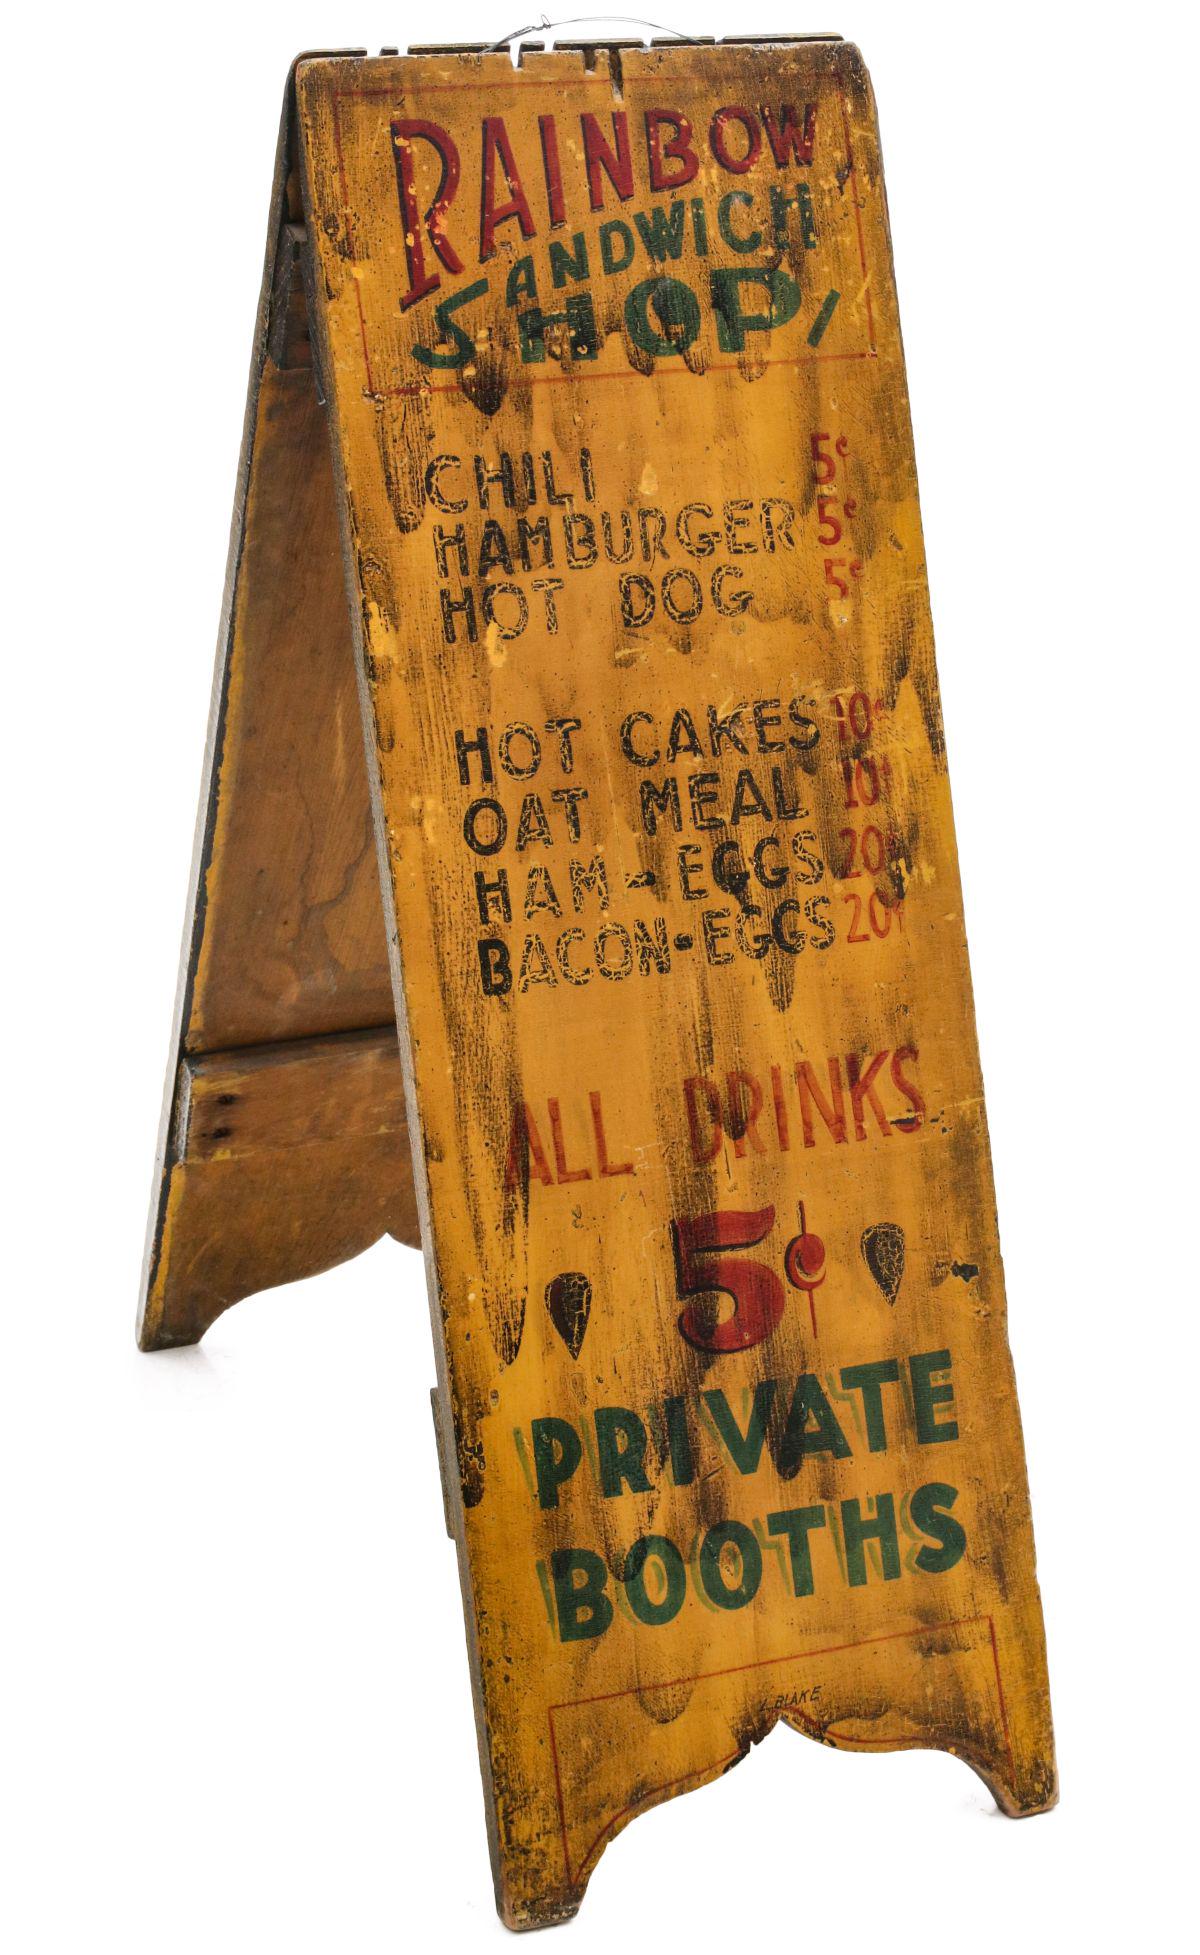 RAINBOW
SANDWICH
SHOP,
CHILI 5¢
HAMBURGER 5¢
HOT DOG 5¢
HOT CAKES 10¢
OAT MEAL 10¢
HAM-EGGS 20¢
BACON-EGGS 20¢
ALL DRINKS
5¢
PRIVATE
BOOTHS
L. BLAKE